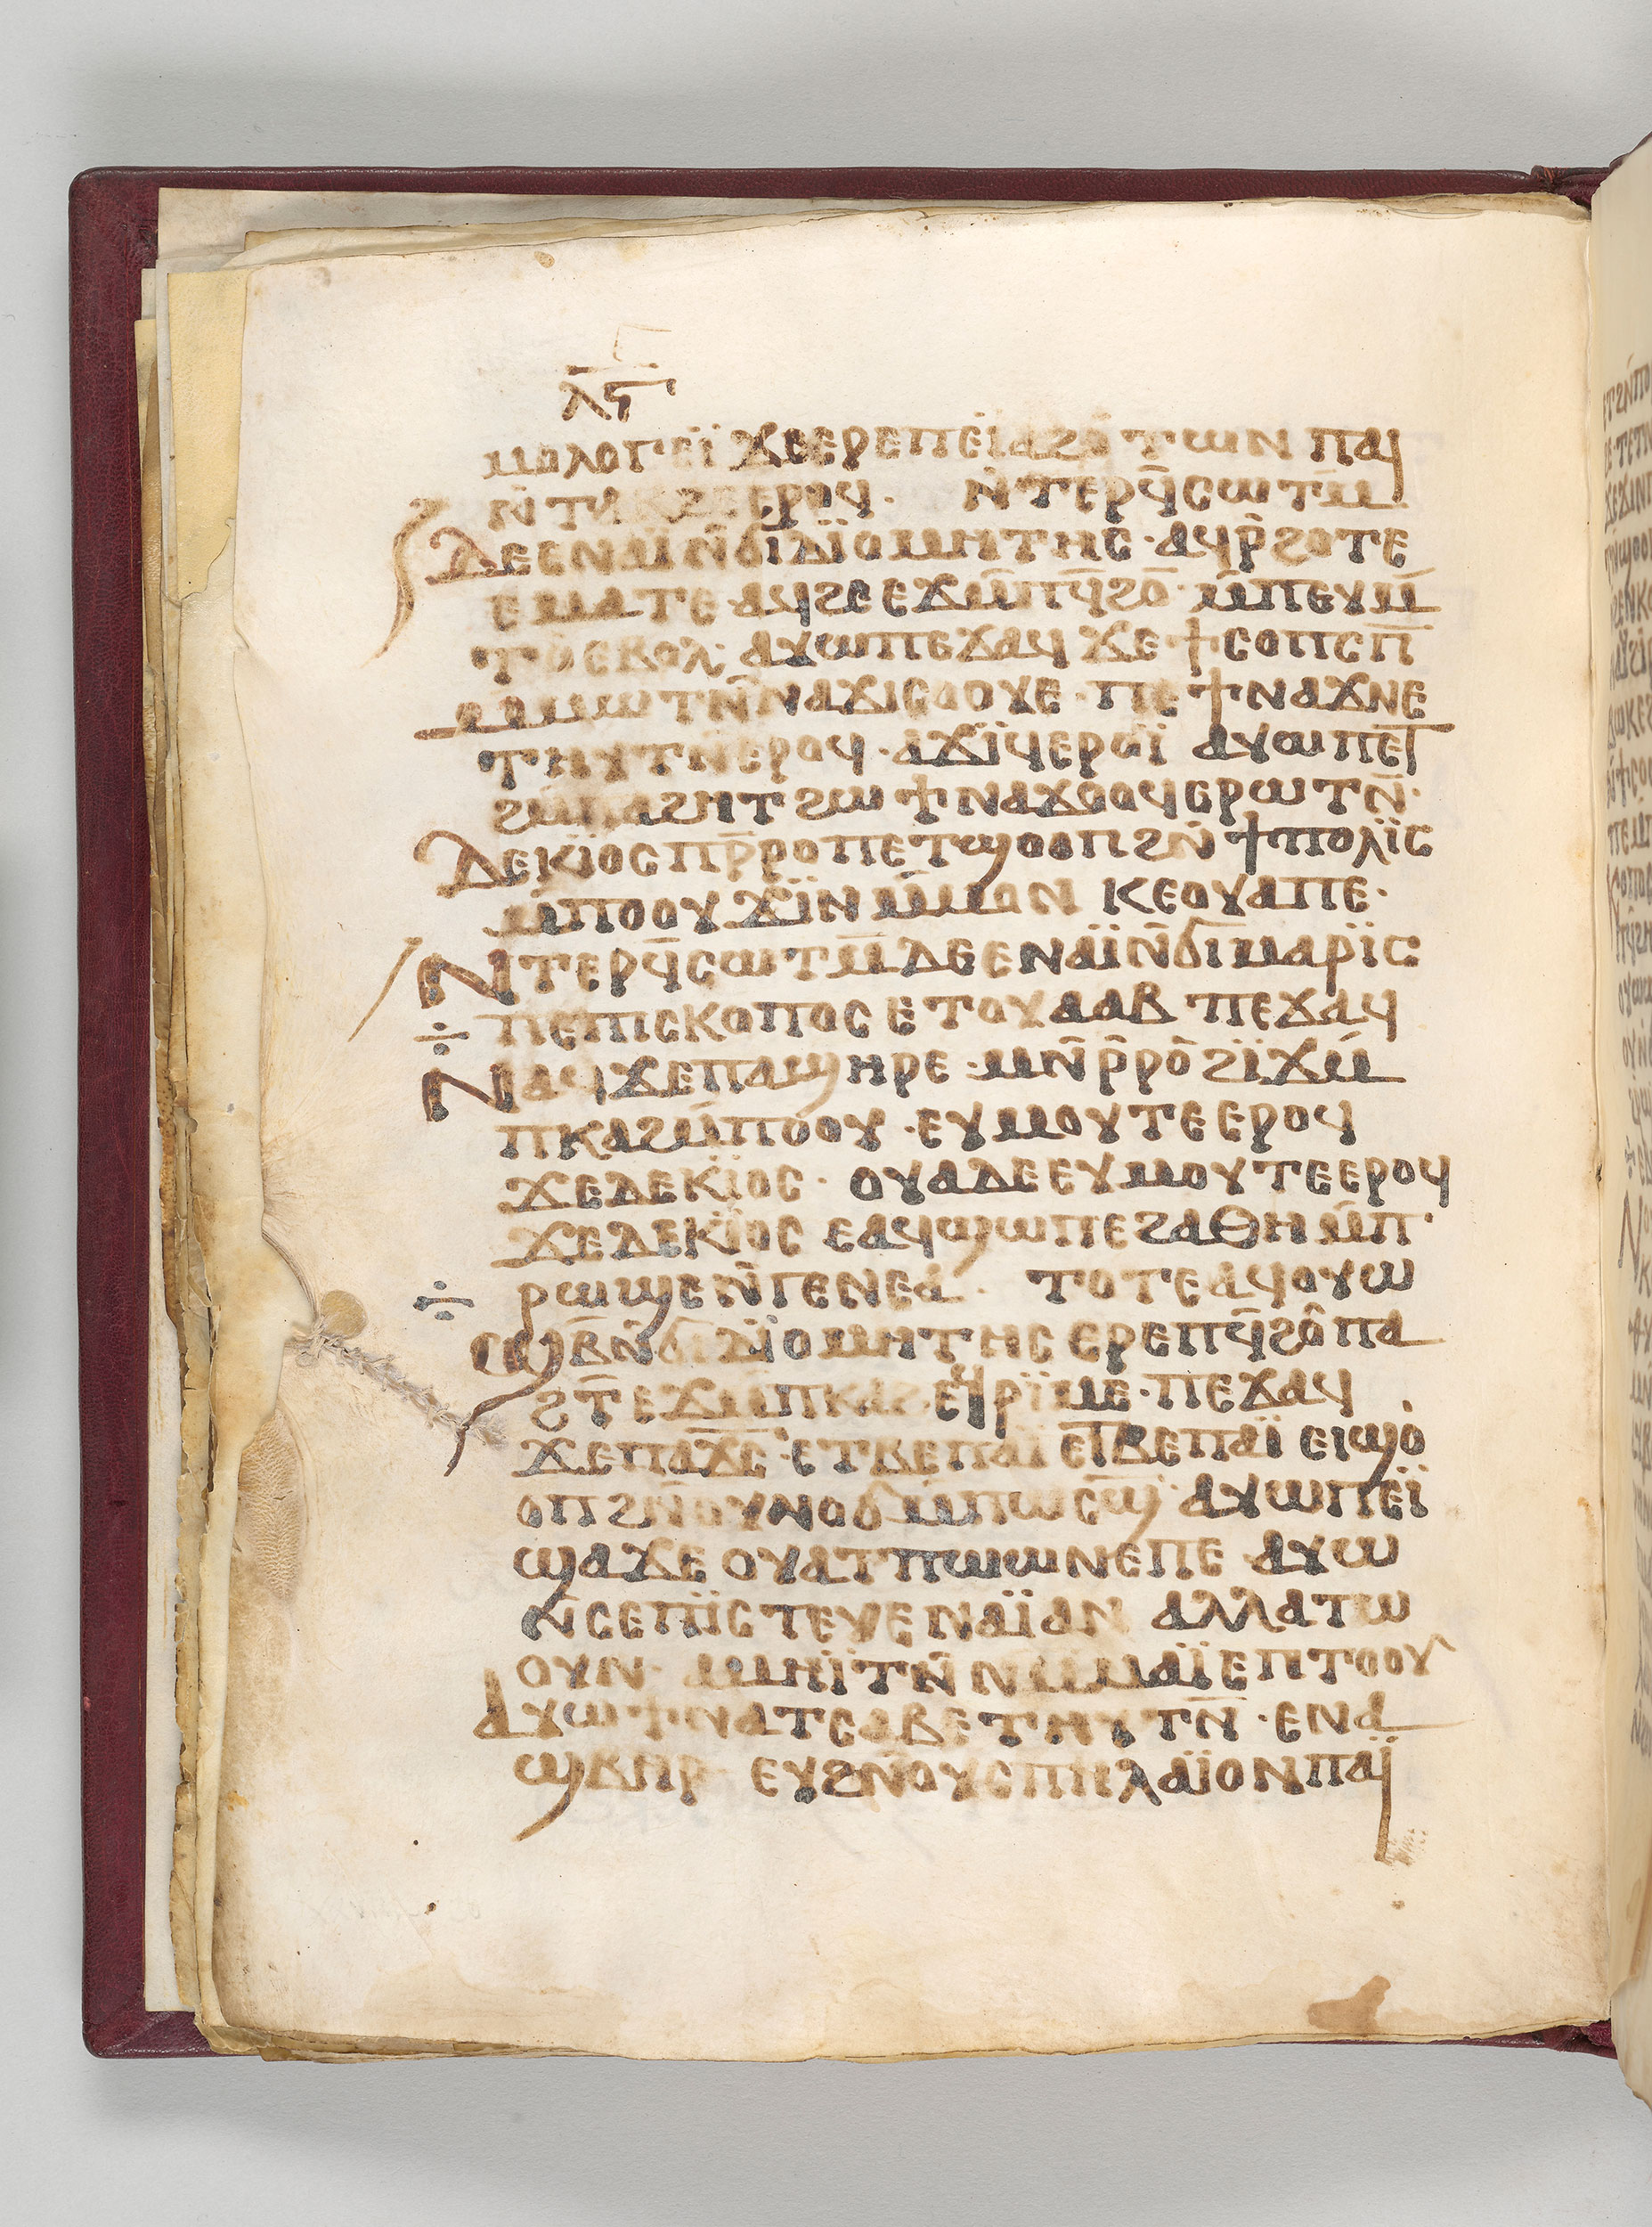 ⲗⲋ
ⲙⲟⲗⲟⲅⲉⲓ̈ ϫⲉⲉⲣⲉⲡⲉⲓ̈ⲁϩⲟ ⲧⲱⲛ ⲡⲁⲓ̈
ⲛ̄ⲧⲁⲕϩⲉⲉⲣⲟϥ · ⲛ̄ⲧⲉⲣϥ̄ⲥⲱⲧⲙ̄
ⲇⲉⲉⲛⲁⲓ̈ⲛ̄ϭⲓⲇⲓ̈ⲟⲙⲏⲧⲏⲥ · ⲁϥⲣ̄ϩⲟⲧⲉ
ⲉⲙⲁⲧⲉ ⲁϥϩⲉⲉϫⲙ̄ⲡϥ̄ϩⲟ · ⲙ̄ⲡⲉⲩⲙ̄
ⲧⲟⲉⲃⲟⲗ · ⲁⲩⲱⲡⲉϫⲁϥ ϫⲉ ϯⲥⲟⲡⲥⲡ̄
ⲙ̄ⲙⲱⲧⲛ̄ⲛⲁϫⲓⲥⲟⲟⲩⲉ · ⲡⲉϯⲛⲁϫⲛⲉ
ⲧⲏⲩⲧⲛ̄ⲉⲣⲟϥ · ⲁϫⲓ̈ϥⲉⲣⲟⲓ̈ ⲁⲩⲱⲡⲉⲧ
ϩⲙ̄ⲡⲁϩⲏⲧ ϩⲱ ϯⲛⲁϫⲟⲟϥⲉⲣⲱⲧⲛ̄ ·
ⲇⲉⲕⲓ̈ⲟⲥⲡⲣ̄ⲣⲟⲡⲉⲧϣⲟⲟⲡϩⲛ̄ ϯⲡⲟⲗⲓ̈ⲥ
ⲙ̄ⲡⲟⲟⲩ ϫⲓ̈ⲛ ⲙ̄ⲙⲟⲛ ⲕⲉⲟⲩⲁⲡⲉ ·
ⲛ̄ⲧⲉⲣϥ̄ⲥⲱⲧⲙ̄ⲇⲉⲉⲛⲁⲓ̈ⲛ̄ϭⲓⲙⲁⲣⲓ̈ⲥ
ⲡⲉⲡⲓⲥⲕⲟⲡⲟⲥ ⲉⲧⲟⲩⲁⲁⲃ ⲡⲉϫⲁϥ
ⲛⲁϥϫⲉⲡⲁϣⲏⲣⲉ · ⲙⲛ̄ⲣ̄ⲣⲟ ϩⲓ̈ϫⲙ̄
ⲡⲕⲁϩⲙ̄ⲡⲟⲟⲩ · ⲉⲩⲙⲟⲩⲧⲉⲉⲣⲟϥ
ϫⲉⲇⲉⲕⲓ̈ⲟⲥ · ⲟⲩⲁⲇⲉⲉⲩⲙⲟⲩⲧⲉⲉⲣⲟϥ
ϫⲉⲇⲉⲕⲓ̈ⲟⲥ ⲉⲁϥϣⲱⲡⲉϩⲁⲑⲏ ⲙ̄ⲡ
ⲣⲱϣⲉⲛ̄ⲅⲉⲛⲉⲁ · ⲧⲟⲧⲉⲁϥⲟⲩⲱ
ϣⲃ̄ⲛ̄ϭⲓⲇⲓ̈ⲟⲙⲏⲧⲏⲥ ⲉⲣⲉⲡϥ̄ϩⲟⲡⲁ
ϩⲧ̄ⲉϫⲙ̄ⲡⲕⲁϩ ⲉϥⲣⲓ̈ⲙⲉ · ⲡⲉϫⲁϥ
ϫⲉⲡⲁϫⲥ̄ ⲉⲧⲃⲉⲡⲁⲓ̈ ⲉⲧⲃⲉⲡⲁⲓ̈ ⲉⲓϣⲟ
ⲟⲡϩⲛ̄ⲟⲩⲛⲟϭ ⲙ̄ⲡⲱⲥϣ̄ ⲁⲩⲱⲡⲉⲓ̈
ϣⲁϫⲉ ⲟⲩⲁⲧⲡⲱⲱⲛⲉⲡⲉ ⲁⲩⲱ
ⲛ̄ⲥⲉⲡⲓ̈ⲥⲧⲉⲩⲉ ⲛⲁⲓ̈ⲁⲛ ⲁⲗⲗⲁⲧⲱ
ⲟⲩⲛ · ⲁⲙⲏⲓ̈ⲧⲛ̄ ⲛⲙ̄ⲙⲁⲓ̈ⲉⲡⲧⲟⲟⲩ
ⲁⲩⲱϯⲛⲁⲧⲥⲁⲃⲉⲧⲏⲩⲧⲛ̄ · ⲉⲛⲁ
ϣⲃⲏⲣ ⲉⲩϩⲛ̄ⲟⲩⲥⲡⲏⲗⲁⲓ̈ⲟⲛⲡⲁⲓ̈